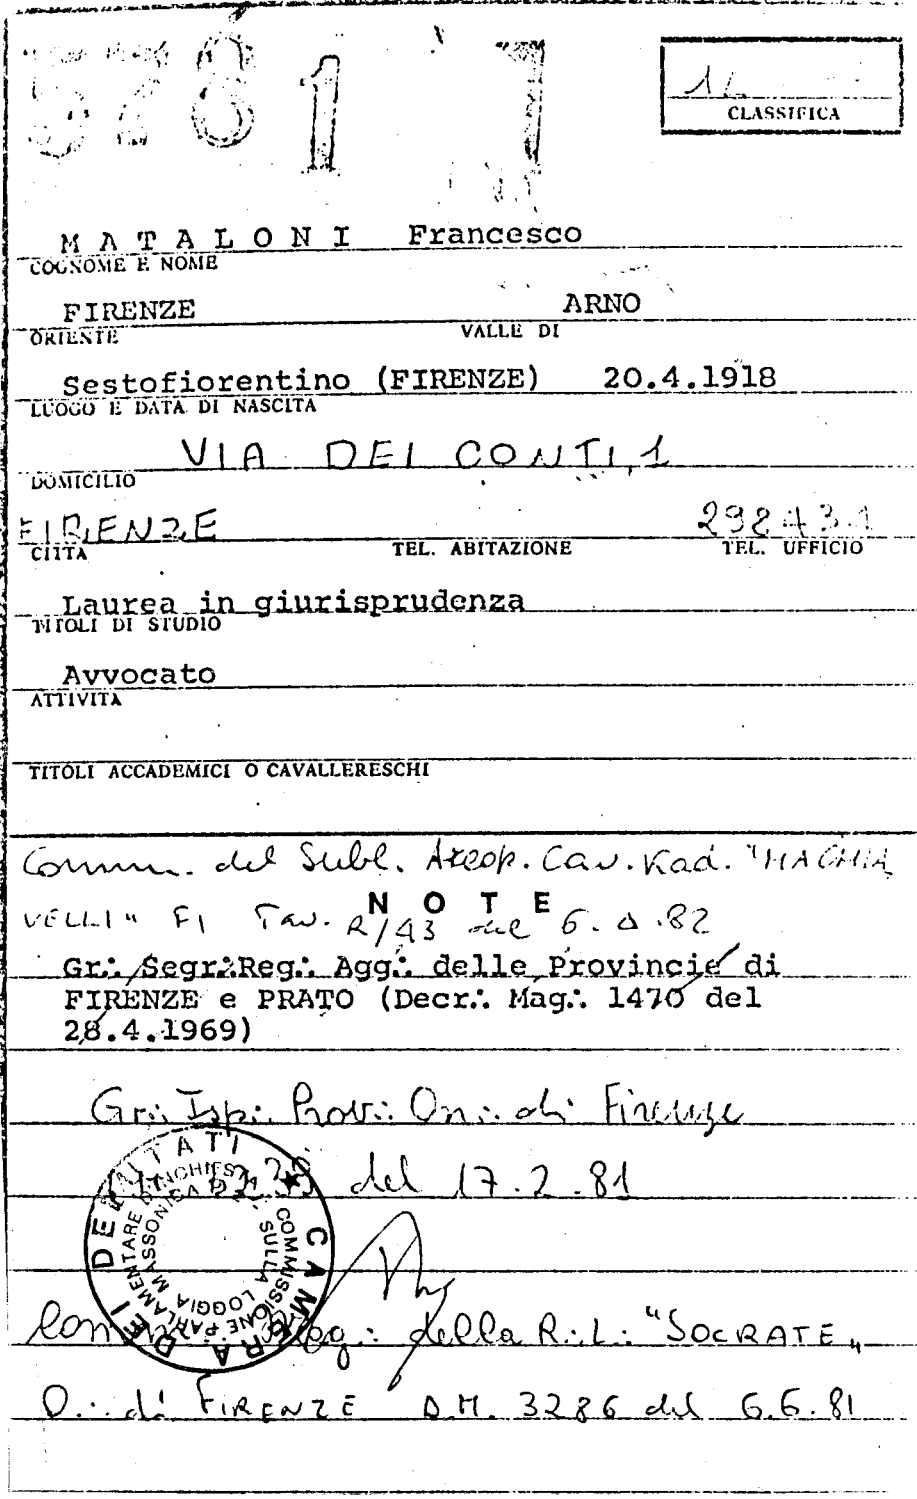 5281
CLASSIFICA
M A T A L O N I Francesco
COGNOME E NOME
FIRENZE ARNO
ORIENTE VALLE DI
Sestofiorentino (FIRENZE) 20.4.1918
LUOGO E DATA DI NASCITA
VIA DEI CONTI, 1
DOMICILIO
FIRENZE 298431
CITTA TEL. ABITAZIONE TEL. UFFICIO
Laurea in giurisprudenza
TITOLI DI STUDIO
Avvocato
ATTIVITA
TITOLI ACCADEMICI O CAVALLERESCHI
Comm. del Subl. Areop. Cav. Kad. "MACHIA
N O T E
VELLI" FI Tav. R/93 del 6.  .82
Gr∴ Segr∴Reg∴ Agg∴ delle Provincie di
FIRENZE e PRATO (Decr∴ Mag∴ 1470 del
28.4.1969)
Gr∴ Isp∴ Prov∴ On∴ di Firenze
del 17.2.81
CAMERA DEI DEPUTATI
COMMISSIONE PARLAMENTARE D'INCHIESTA
SULLA LOGGIA MASSONICA P2
della R∴L∴ "SOCRATE"
O∴ di FIRENZE D.M. 3286 del 6.6.81